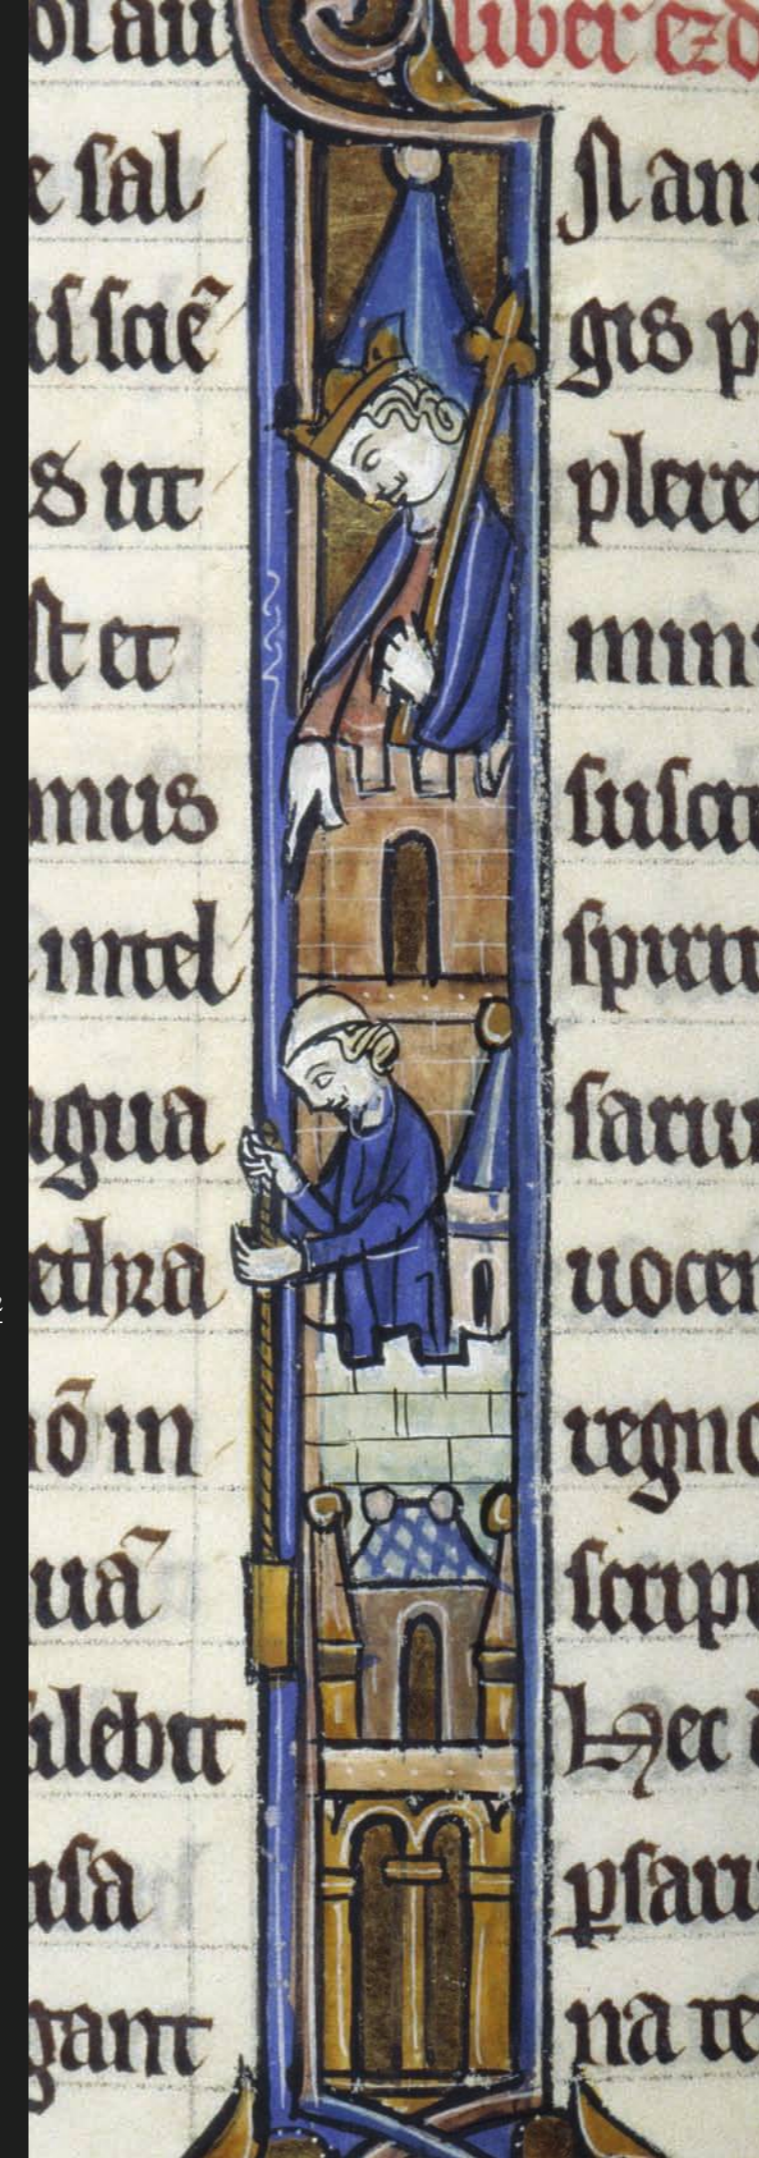 e sal
sciē
s ut
st et
mus
intel
gua
ethra
nō in
uā
lebit
usa
gant
liber ezd
N an
gis p
plere
mini
suscit
spirit
saru
uocem
regno
script
Hec d
ꝑsaru
na te